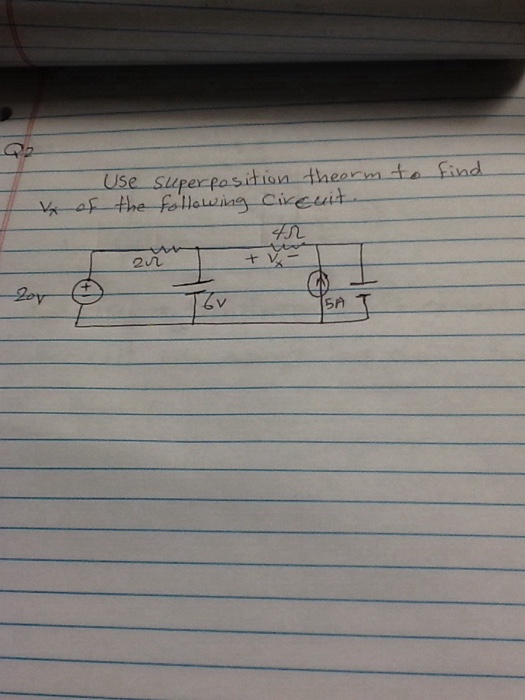 Q2
Use superposition theorm to find
Vx of the following circuit.
4Ω
2Ω
+ Vx -
20V
+
-
6V
5A